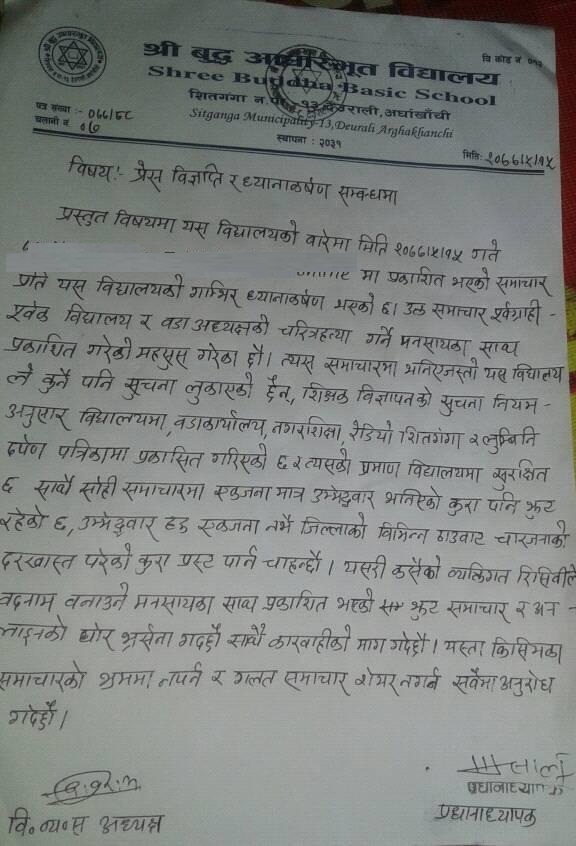 वि कोड नं ०१२
श्री बुद्ध आधारभूत विद्यालय
Shree Buddha Basic School
शितगंगा न.पा. १३ देउराली, अर्घाखाँची
Sitganga Municipality-13, Deurali Arghakhanchi
स्थापना : २०३१
पत्र संख्या :- ०७७/७८
चलानी नं. ०७
मिति: २०७७/५/१५
विषय:- प्रेस विज्ञप्ति र ध्यानाकर्षण सम्बन्धमा
प्रस्तुत विषयमा यस विद्यालयको वारेमा मिति २०७७/५/१५ गते
मा प्रकाशित भएको समाचार
प्रति यस विद्यालयको गाम्भिर ध्यानाकर्षण भएको छ। उक्त समाचार पूर्वग्राही -
पूर्वक विद्यालय र वडा अध्यक्षको चरित्रहत्या गर्ने मनसायका साथ
प्रकाशित गरेको महसुस गरेका छौ। त्यस समाचारमा भनिएजस्तो यस विद्यालय
ले कुनै पनि सुचना लुकाएको छैन, शिक्षक विज्ञापनको सुचना नियम -
अनुसार विद्यालयमा, वडाकार्यालय, नगरशिक्षा, रेडियो शितगंगा र लुम्बिनि
दर्पण पत्रिकामा प्रकासित गरिएको छ र त्यसको प्रमाण विद्यालयमा सुरक्षित
छ साथै सोही समाचारमा एकजना मात्र उम्मेद्वार भनिएको कुरा पनि झुट
रहेको छ, उम्मेद्वार एकजना नभै जिल्लाको विभिन्न ठाउवाट चारजनाको
दरखास्त परेको कुरा प्रस्ट पार्न चाहन्छौ। यसरी कसैको व्यक्तिगत रिसिवीले
वदनाम वनाउने मनसायका साथ प्रकाशित भएको झुट समाचार र अन -
लाइनको घोर भर्त्सना गर्दछौ साथै कारवाहीको माग गर्दछौ। यस्ता किसिमका
समाचारको भ्रममा नपर्न र गलत समाचार शेयर नगर्न सवैमा अनुरोध
गर्दछौ।
वि.व्य.स अध्यक्ष
प्रधानाध्यापक
प्रधानाध्यापक